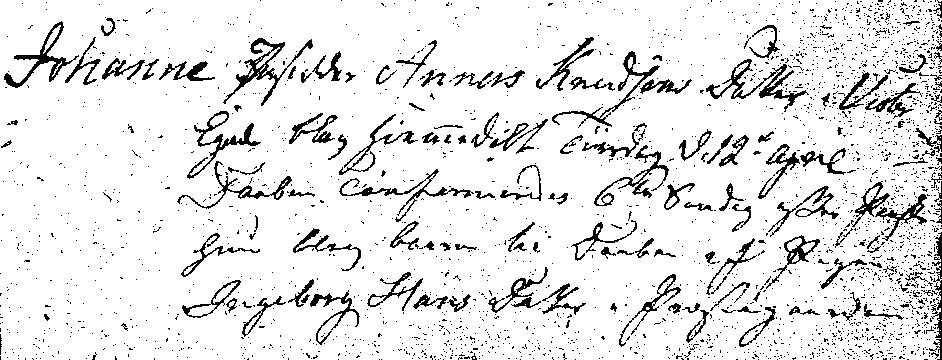 Johanne Indsidder Anders Knudsens Datter i Vester
Egede blev hiemmedøbt Tiirsdag d. 12te april
Daaben Confirmeredes 6te Søndag efter Paaske
hun blev baaren til Daaben af Pigen
Ingeborg Hans Datter i Præstegaarden